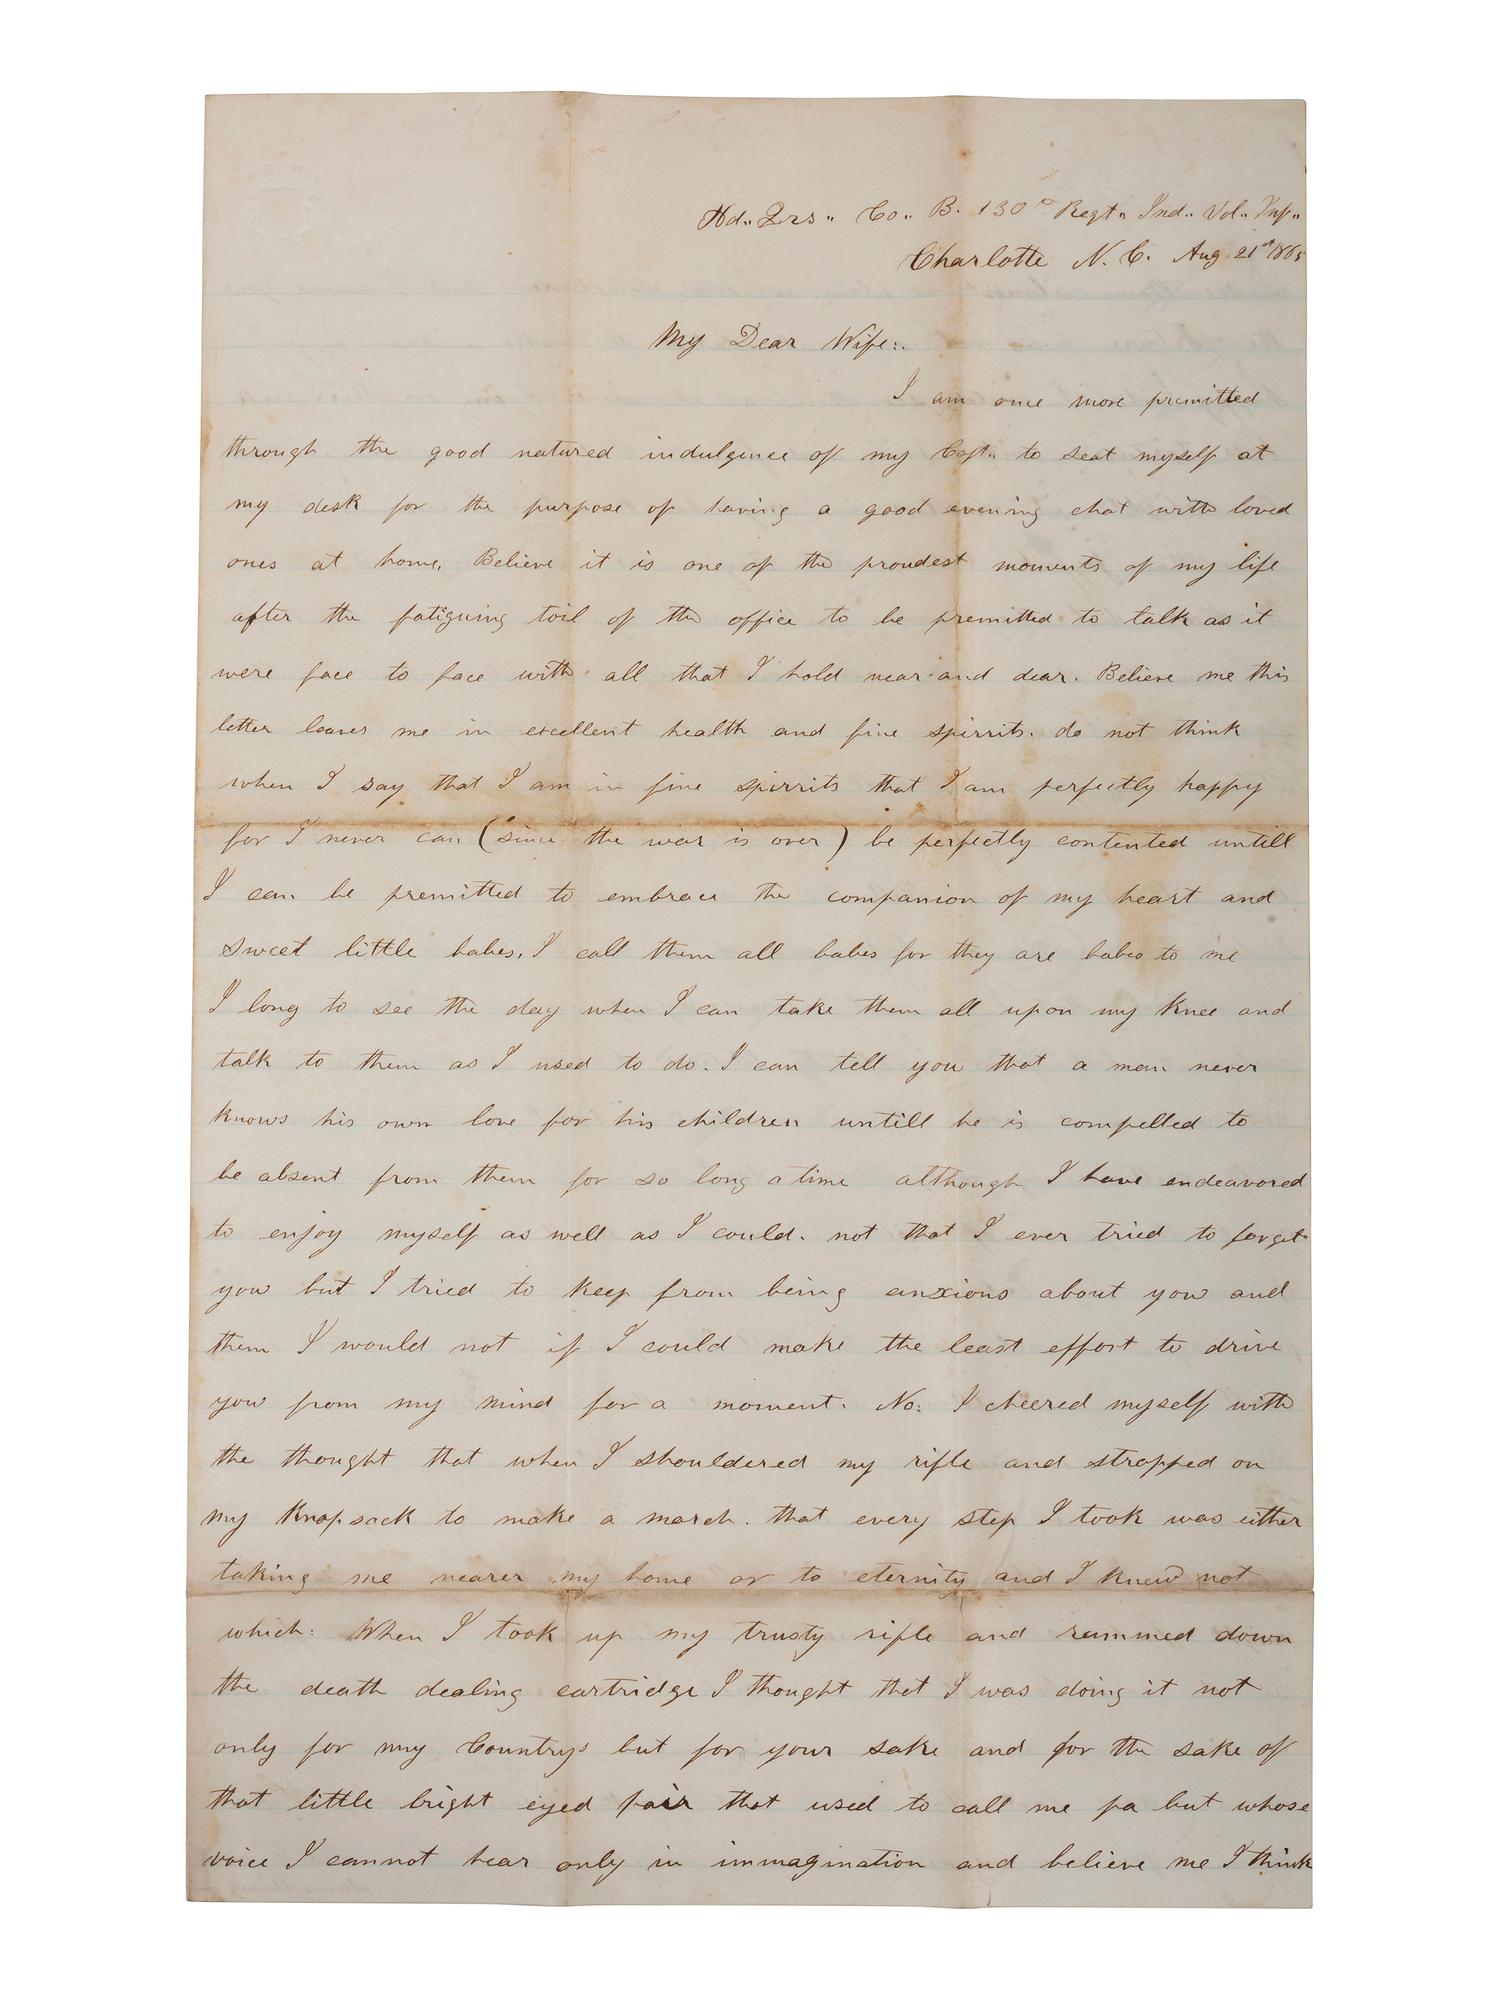 Hd.. Qrs.. Co.. B. 130th Regt.. Ind.. Vol.. Inf..
Charlotte N. C. Aug. 21st 1865
My Dear Wife:.
I am once more premitted
through the good natured indulgence of my Capt.. to seat myself at
my desk for the purpose of having a good evening chat with loved
ones at home. Believe it is one of the proudest moments of my life
after the fatiguing toil of the office to be premitted to talk as it
were face to face with all that I hold near and dear. Believe me this
letter leaves me in excellent health and fine spirrits. do not think
when I say that I am in fine spirrits that I am perfectly happy
for I never can (since the war is over) be perfectly contented untill
I can be premitted to embrace the companion of my heart and
sweet little babes. I call them all babes for they are babes to me
I long to see the day when I can take them all upon my knee and
talk to them as I used to do. I can tell you that a man never
knows his own love for his children untill he is compelled to
be absent from them for so long a time although I have endeavored
to enjoy myself as well as I could. not that I ever tried to forget
you but I tried to keep from being anxious about you and
them I would not if I could make the least effort to drive
you from my mind for a moment. No: I cheered myself with
the thought that when I shouldered my rifle and strapped on
my knapsack to make a march. that every step I took was either
taking me nearer my home or to eternity and I knew not
which: When I took up my trusty rifle and rammed down
the death dealing cartridge I thought that I was doing it not
only for my Countrys but for your sake and for the sake of
that little bright eyed pair that used to call me pa but whose
voice I cannot hear only in immagination and believe me I think